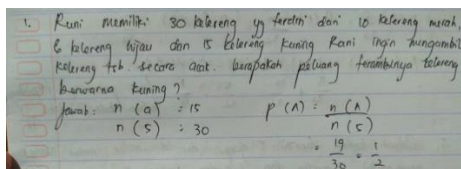 1. Runi memiliki 30 kelereng yg terdiri dari 10 kelereng merah,
6 kelereng hijau dan 15 kelereng kuning Rani ingin mengambil
kelereng tsb. secara acak. berapakah peluang terambilnya kelereng
berwarna kuning?
Jawab: n (a) = 15 P (A) = n (A)
n (s) : 30 n (s)
= 19 = 1
30 2